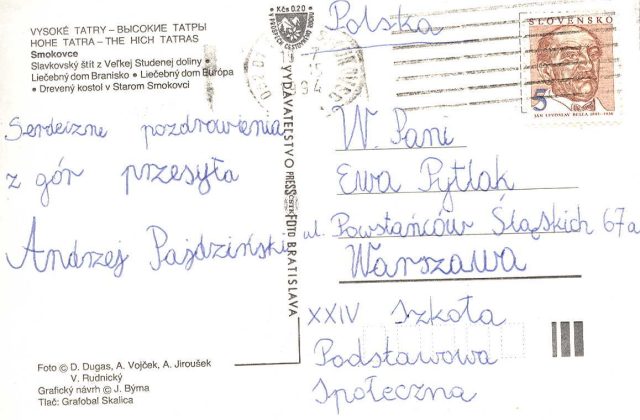 VYSOKÉ TATRY – ВЫСОКИЕ ТАТРЫ
HOHE TATRA – THE HICH TATRAS
Smokovce
Slavkovský štít z Veľkej Studenej doliny •
Liečebný dom Branisko • Liečebný dom Európa
• Drevený kostol v Starom Smokovci
Serdeczne pozdrowienia
z gór przesyła
Andrzej Pajdziński
Foto © D. Dugas, A. Vojček, A. Jiroušek
V. Rudnický
Grafický návrh © J. Býma
Tlač: Grafobal Skalica
Kčs 0.20
VYDAVATEĽSTVO PRESSFOTO BRATISLAVA
Polska
SLOVENSKO
5
W. Pani
Ewa Pytlak
ul. Powstańców Śląskich 67a
Warszawa
XXIV Szkoła
Podstawowa
Społeczna